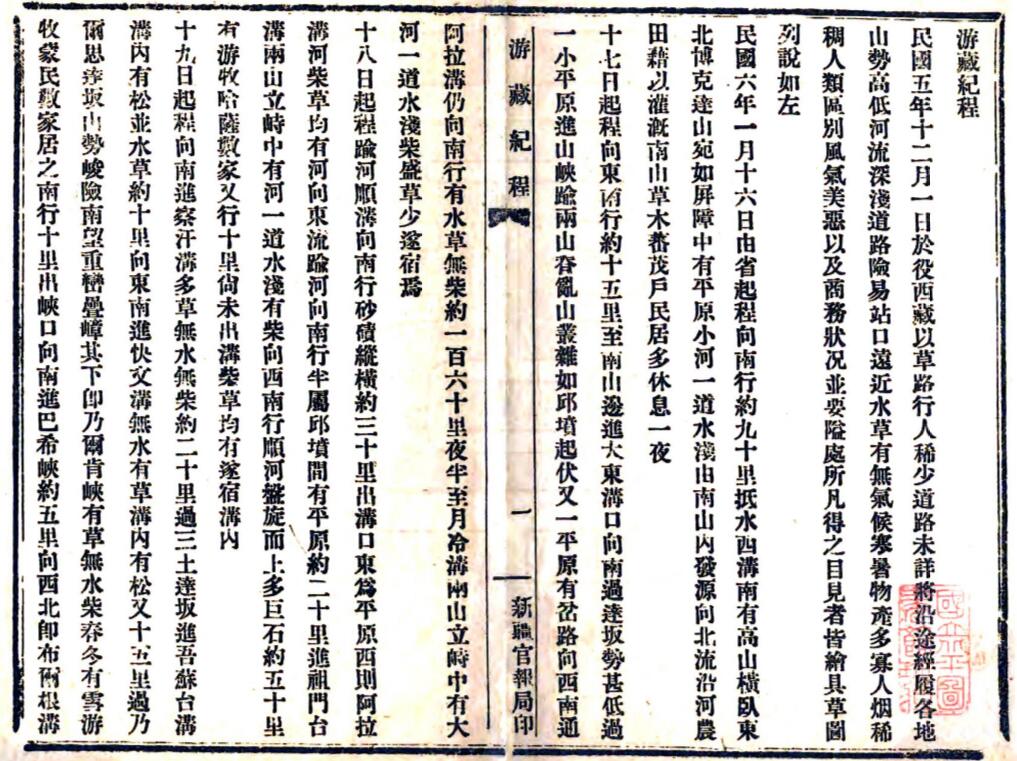 游藏紀程
民國五年十二月一日於役西藏以草路行人稀少道路未詳將沿途經履各地
山勢高低河流深淺道路險易站口遠近水草有無氣候寒暑物產多寡人烟稀
稠人類區別風氣美惡以及商務狀況並要隘處所凡得之目見者皆繪具草圖
列說如左
民國六年一月十六日由省起程向南行約九十里抵水西溝南有高山橫臥東
北博克達山宛如屏障中有平原小河一道水淺由南山內發源向北流沿河農
田藉以灌溉南山草木蕃茂戶民居多休息一夜
十七日起程向東南行約十五里至南山邊進大東溝口向南過達坂勢甚低過
一小平原進山峽踰兩山脊亂山叢雜如邱墳起伏又一平原有岔路向西南通
游藏紀程
一
新疆官報局印
阿拉溝仍向南行有水草無柴約一百六十里夜半至月冷溝兩山立峙中有大
河一道水淺柴盛草少遂宿焉
十八日起程踰河順溝向南行砂磧縱橫約三十里出溝口東為平原西則阿拉
溝河柴草均有河向東流踰河向南行半屬邱墳間有平原約二十里進祖門台
溝兩山立峙中有河一道水淺有柴向西南行順河盤旋而上多巨石約五十里
有游牧哈薩數家又行十里尙未出溝柴草均有遂宿溝內
十九日起程向南進察汗溝多草無水無柴約二十里過三土達坂進吾蘇台溝
溝內有松並水草約十里向東南進快父溝無水有草溝內有松又十五里過乃
爾思達坂山勢峻險南望重巒疊嶂其下卽乃爾肯峽有草無水柴春冬有雪游
牧蒙民數家居之南行十里出峽口向南進巴希峽約五里向西北卽布爾根溝